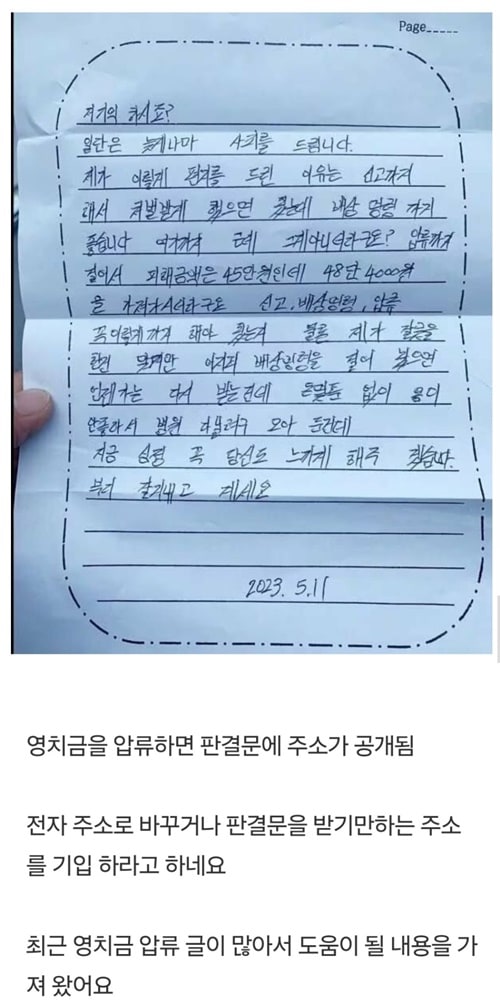 Page
저기억 하시죠?
일단은 늦게나마 사죄를 드립니다.
제가 이렇게 편지를 드린 이유는 신고까지
해서 처벌받게 했으면 됐는데 배상 명령 까지
좋습니다 여기까지 근데 그게아니더라구요? 압류까지
걸어서 피해금액은 45만원인데 48만 4000원
을 가져가셨더라구요 신고, 배상명령, 압류
꼭이렇게까지 해야 했는지 물론 제가 잘못을
한건 맞지만 어차피 배상명령을 걸어 놨으면
언젠가는 다시 받는건데 없이
병원 모아 둔건데
지금 심정 꼭 당신도 느끼게 해주 겠습니다.
부디 잘지내고 계세요
2023. 5.11
영치금을 압류하면 판결문에 주소가 공개됨
전자 주소로 바꾸거나 판결문을 받기만하는 주소
를 기입 하라고 하네요
최근 영치금 압류 글이 많아서 도움이 될 내용을 가
져 왔어요